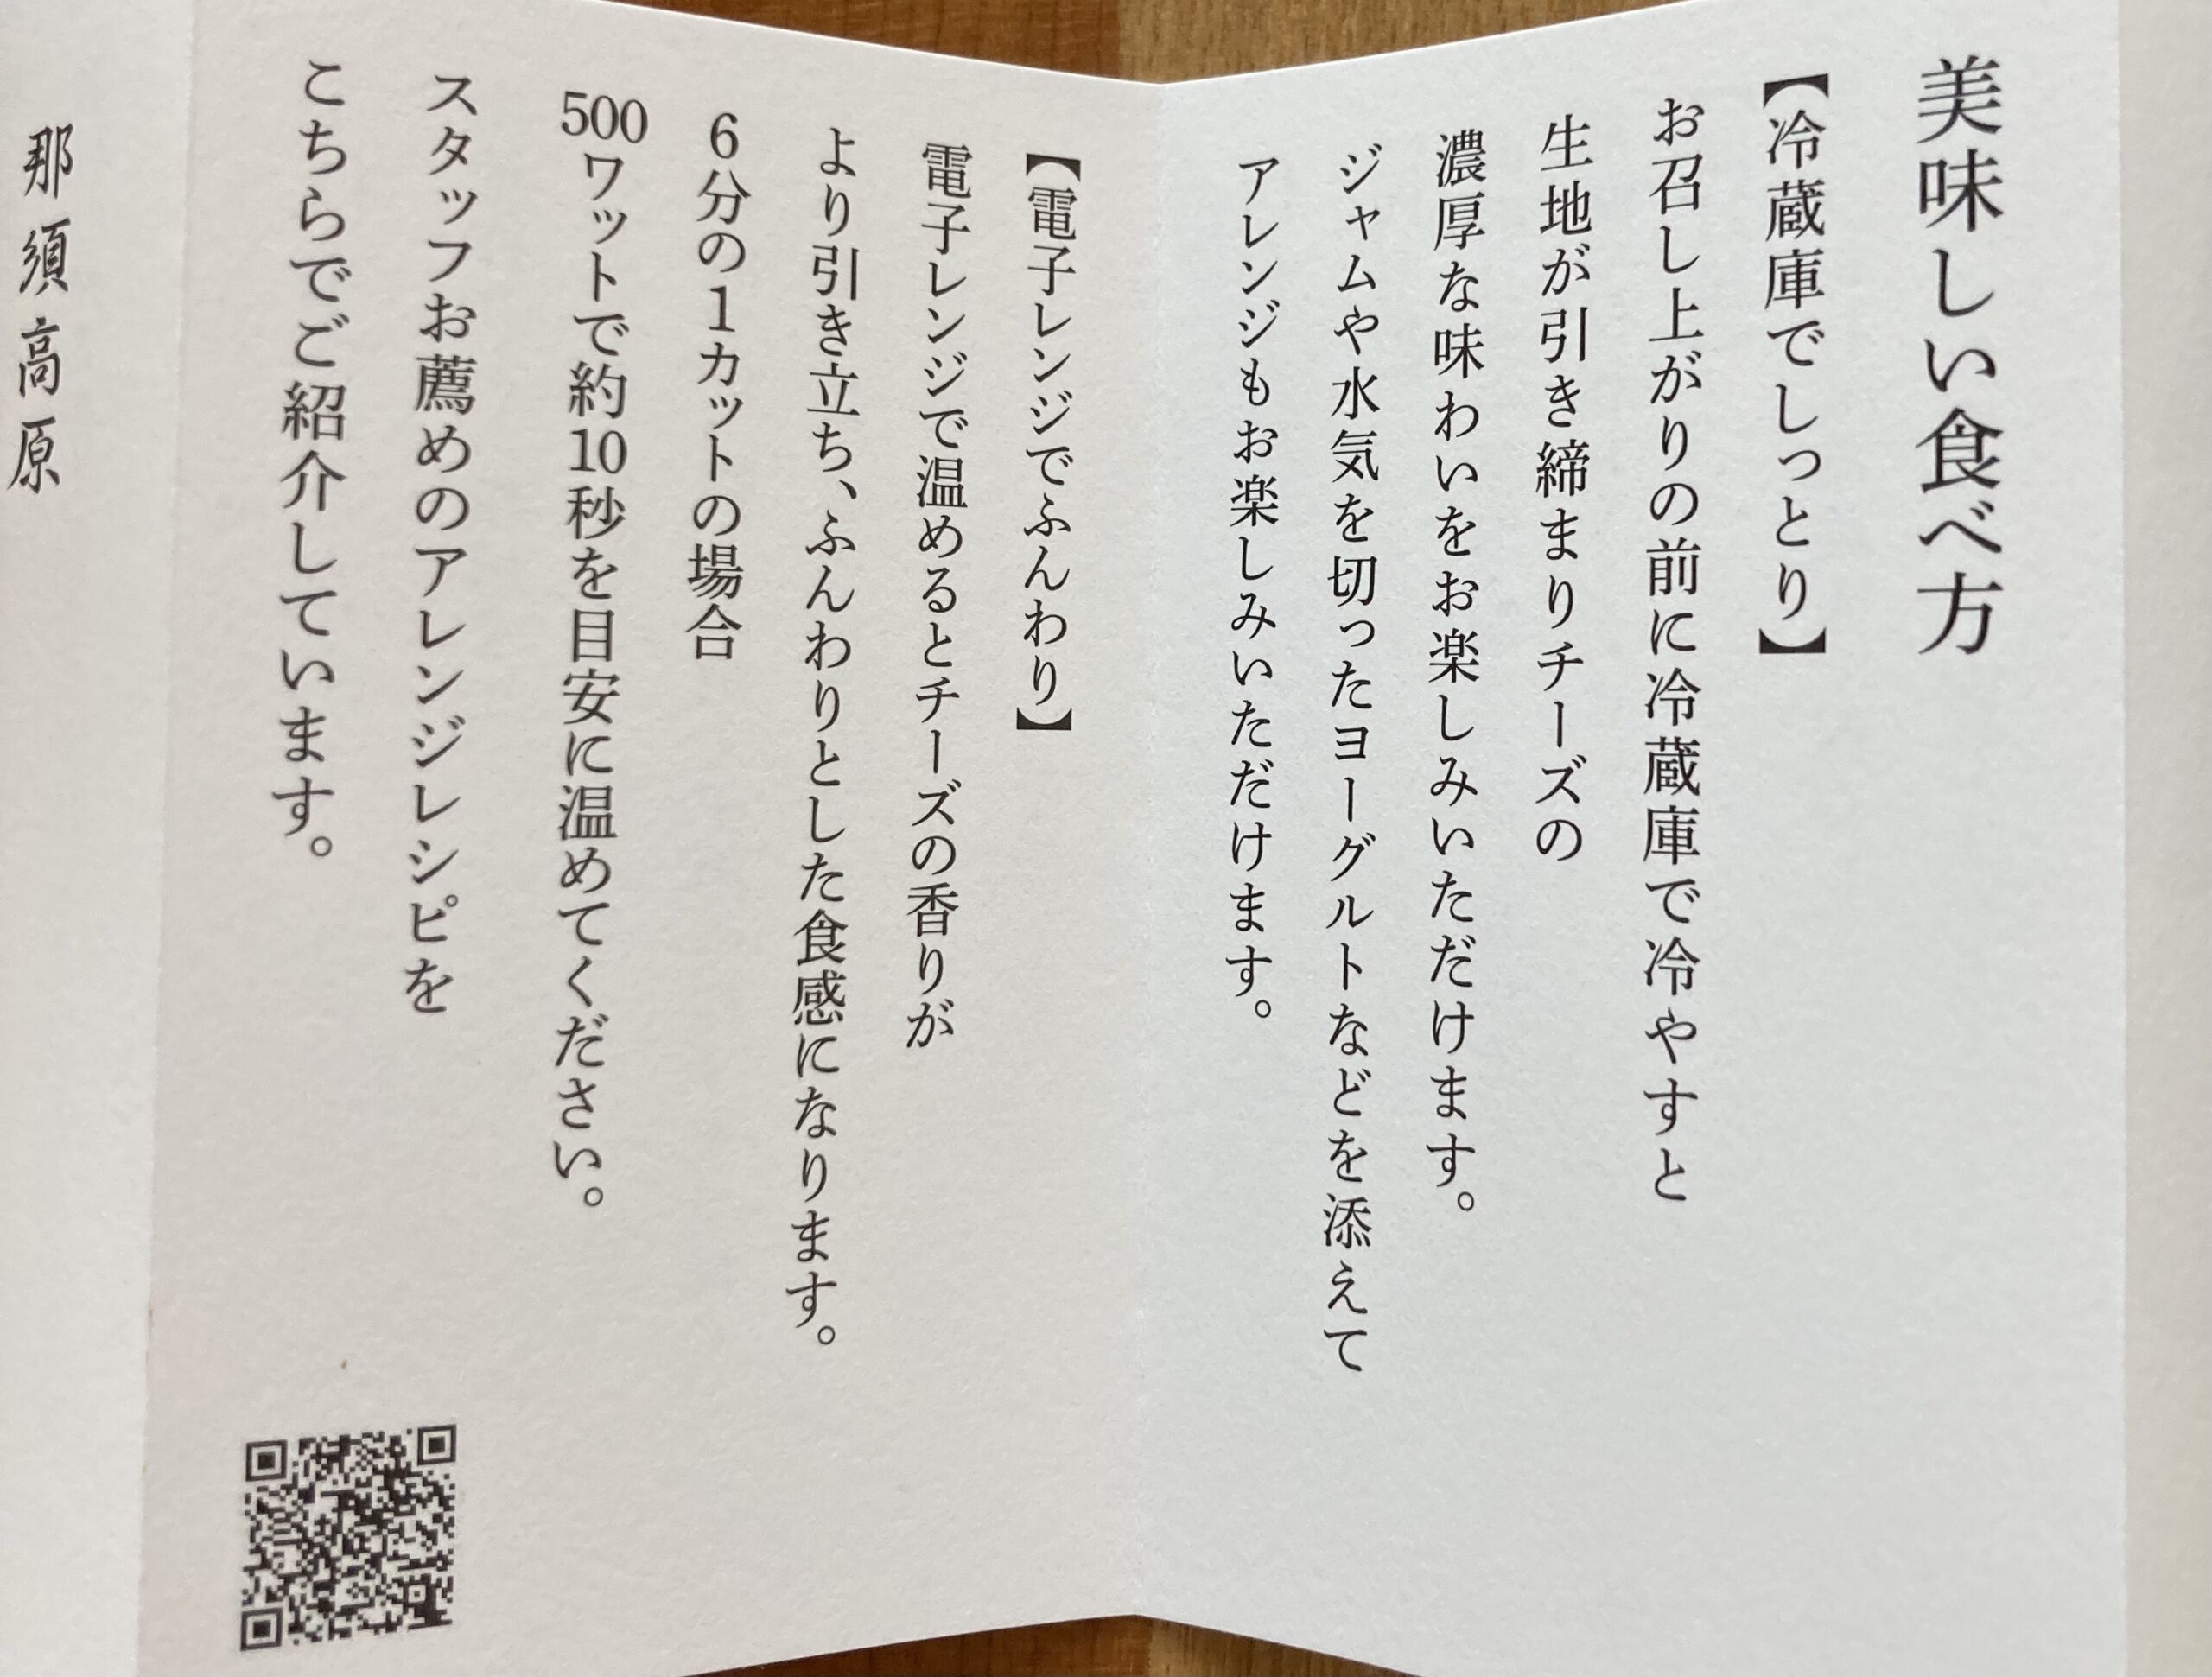 美味しい食べ方
【冷蔵庫でしっとり】
お召し上がりの前に冷蔵庫で冷やすと
生地が引き締まりチーズの
濃厚な味わいをお楽しみいただけます。
ジャムや水気を切ったヨーグルトなどを添えて
アレンジもお楽しみいただけます。
【電子レンジでふんわり】
電子レンジで温めるとチーズの香りが
より引き立ち、ふんわりとした食感になります。
6分の1カットの場合
500ワットで約10秒を目安に温めてください。
スタッフお薦めのアレンジレシピを
こちらでご紹介しています。
那須高原